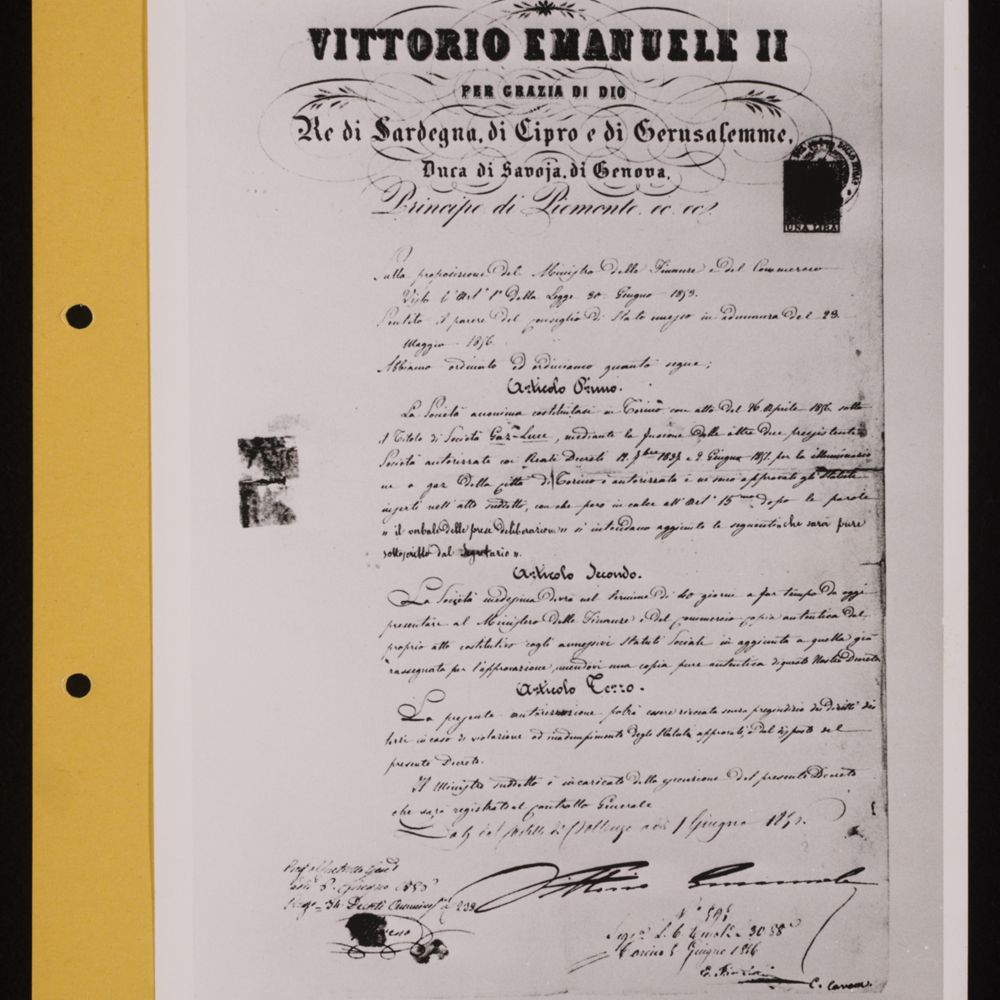 VITTORIO EMANUELE II
PER GRAZIA DI DIO
Re di Sardegna, di Cipro e di Gerusalemme,
Duca di Savoja, di Genova,
Principe di Piemonte, ec. ec.
UNA LIRA
Sulla proposizione del Ministro delle Finanze e del Commercio
Visto l'Art° 1° della Legge 30 Giugno 1853.
Sentito il parere del Consiglio di Stato emesso in adunanza del 23
Maggio 1856.
Abbiamo ordinato ed ordiniamo quanto segue;
Articolo Primo.
La Società anonima costituitasi in Torino con atto del 26 Aprile 1856 sotto
il Titolo di Società Gaz-Luce, mediante la fusione delle altre due preesistenti
Società autorizzate con Reali Decreti e 2 Giugno per la illuminazio
ne a gaz della città di Torino è autorizzata e ne sono approvati gli Statuti
inserti nell'atto suddetto, con che però in calce all'Art° 15mo dopo le parole
" il verbale delle prese deliberazioni " si intendano aggiunte le seguenti che sarà pure
sottoscritto dal Segretario ".
Articolo Secondo.
La Società medesima dovrà nel termine di 40 giorni a far tempo da oggi
presentare al Ministero delle Finanze e del Commercio copia autentica del
proprio atto costitutivo cogli annessivi Statuti Sociali in aggiunta a quella già
rassegnata per l'approvazione, unendovi una copia pure autentica di questo Nostro Decreto
Articolo Terzo.
La presente autorizzazione potrà essere rivocata senza pregiudizio dei diritti dei
terzi in caso di violazione od inadempimento degli Statuti approvati, e del disposto nel
presente Decreto.
Il Ministro suddetto è incaricato della esecuzione del presente Decreto
che sarà registrato al Controllo Generale
Dat. dal Castello di Pollenzo addì 1 Giugno
Vittorio Emanuele
Giugno 1856
Torino 5 Giugno 1856
C. Cavour.